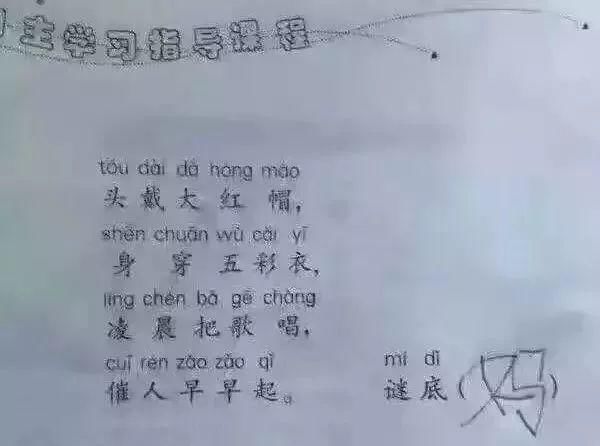 主学习指导课程
tóu dài dà hóng mào
头戴大红帽，
shēn chuān wǔ cǎi yī
身穿五彩衣，
líng chén bǎ gē chàng
凌晨把歌唱，
cuī rén zǎo zǎo qǐ
催人早早起。
mí dǐ
谜底（妈）